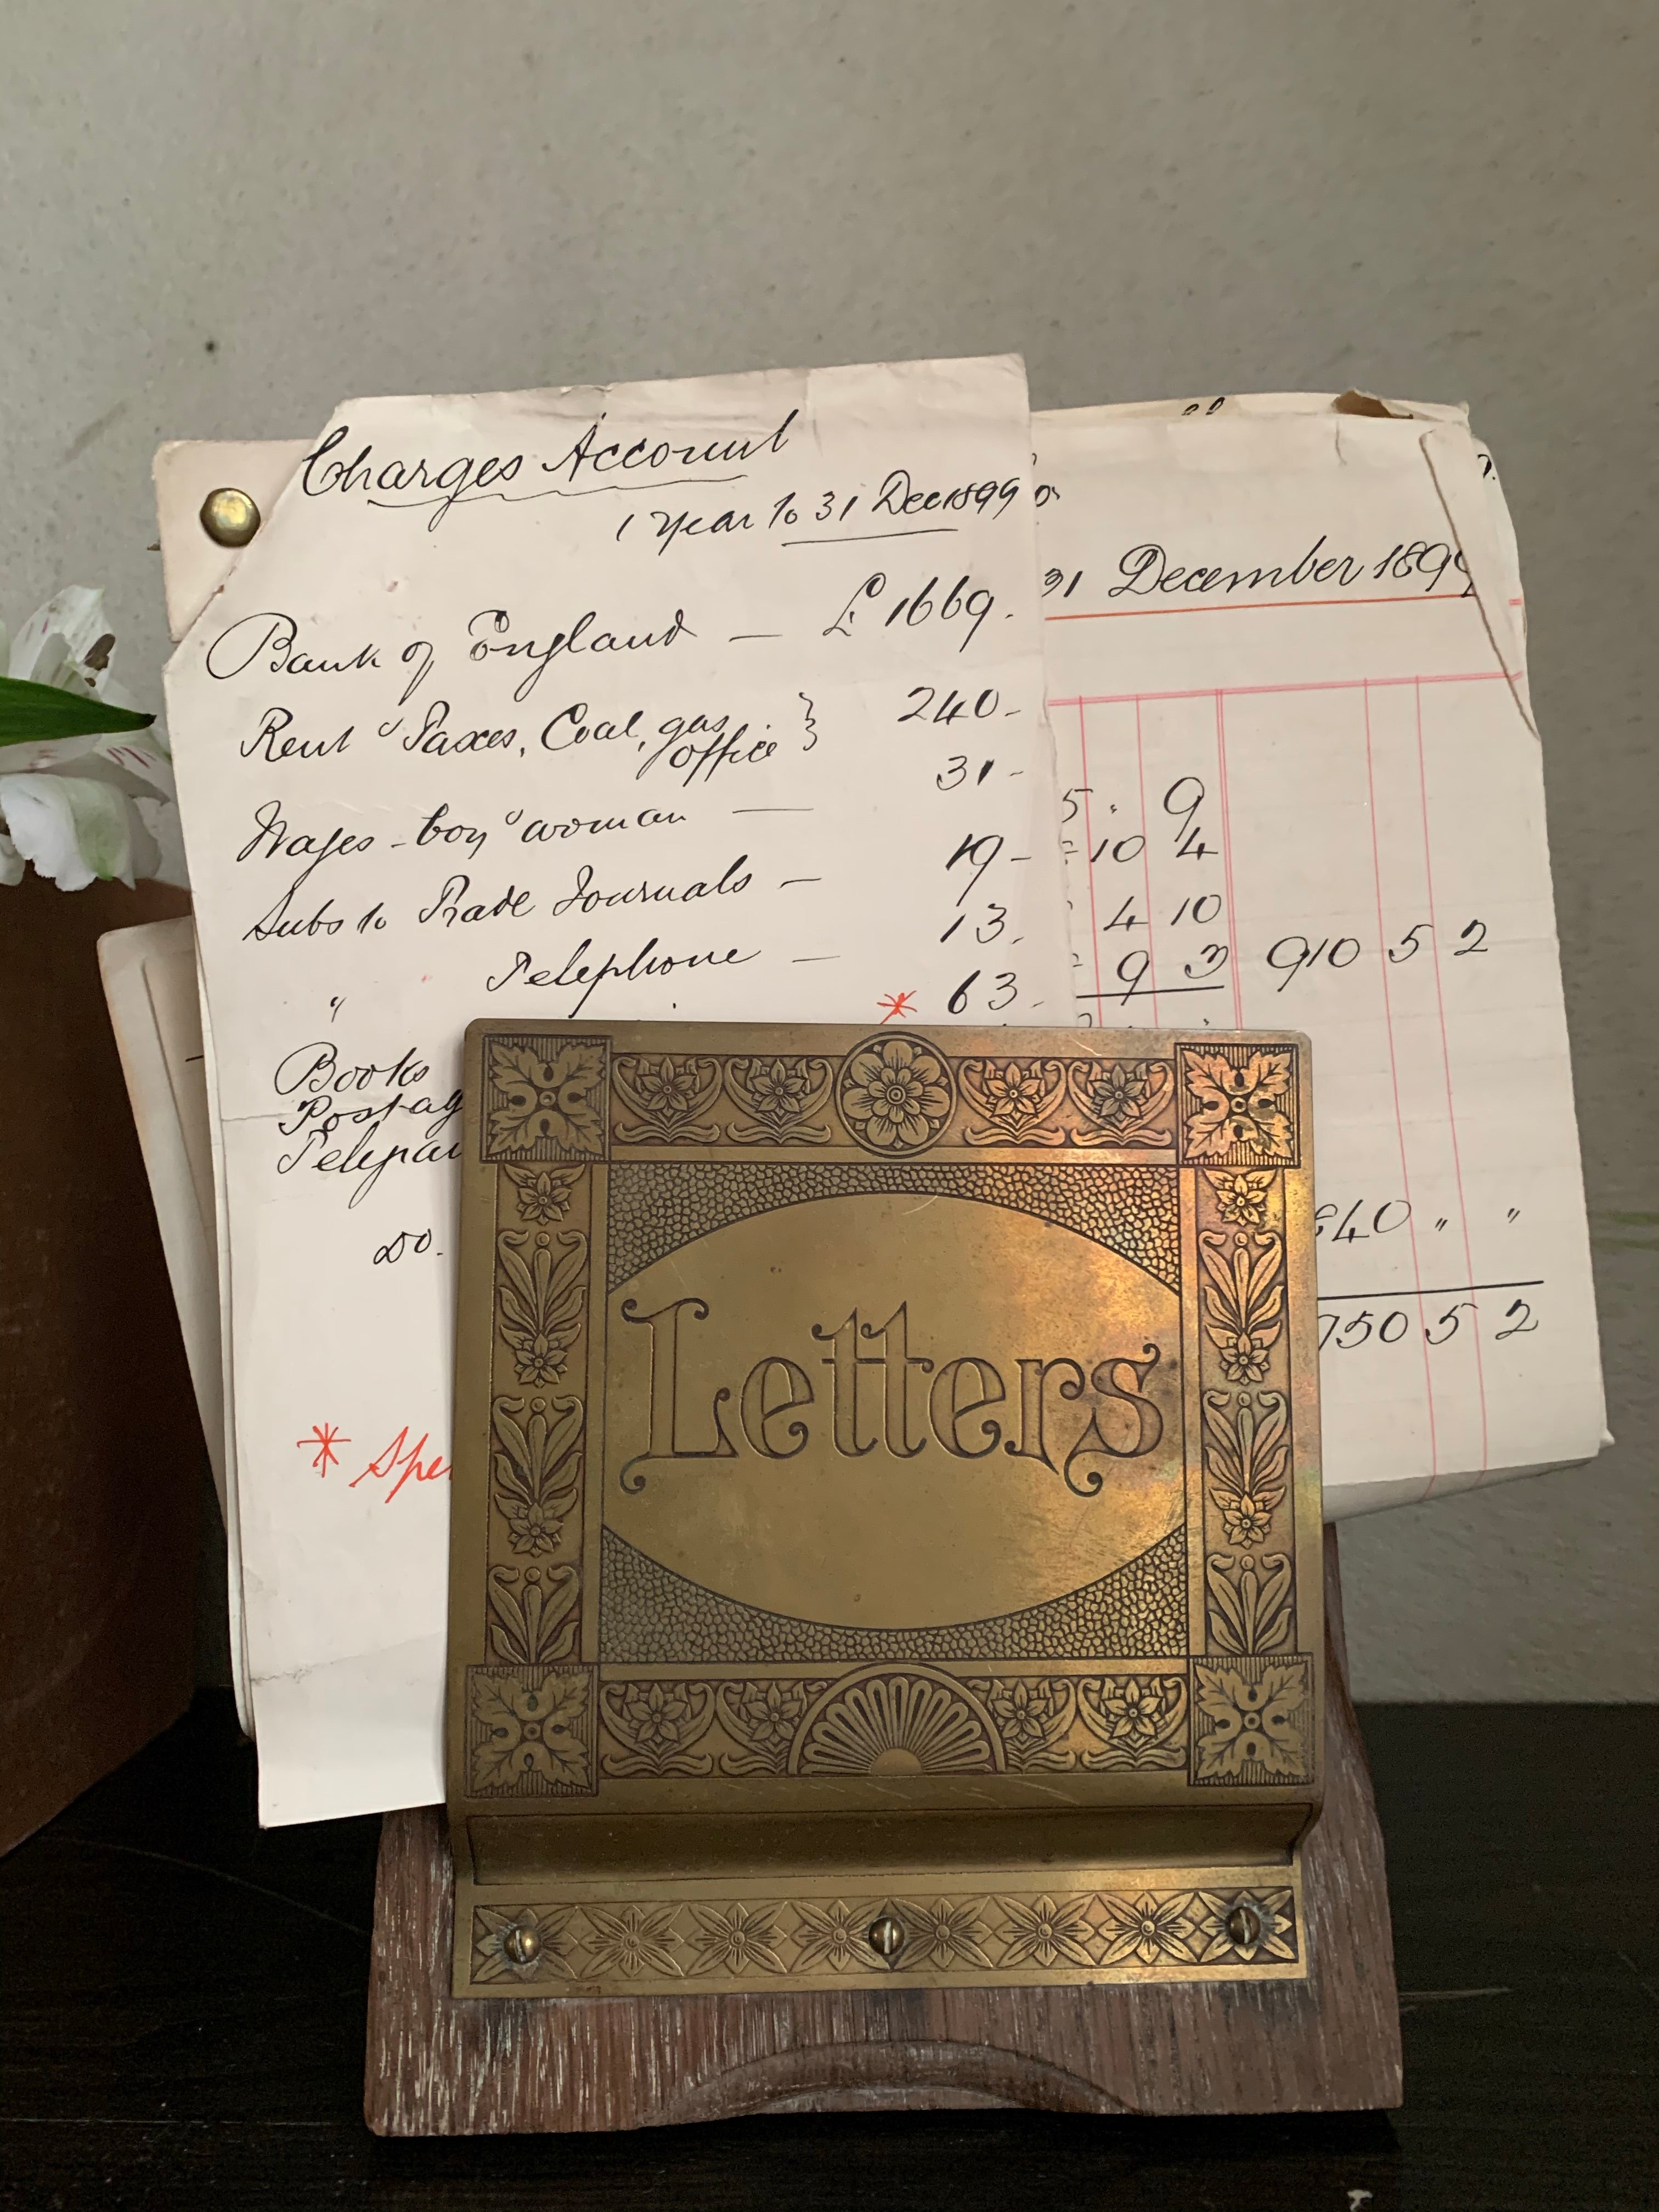 Charges Account
1 Year to 31 Dec 1899
Bank of England — £1669.
Rent & Taxes, Coal, gas, office } 240 -
Wages - boy & woman — 31 -
Subs to Trade Journals — 19 -
" Telephone — 13.
* 63 -
Books
Postag
Do.
* Spe
31 December 1899
5 . 9
10 4
4 10
9 3 910 5 2
840 " "
750 5 2
Letters